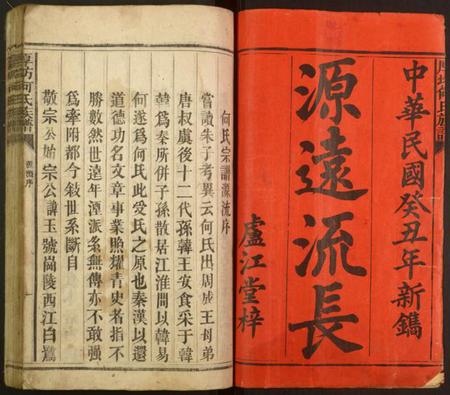 中華民國癸丑年新鐫
源遠流長
盧江堂梓
何氏宗譜源流序
嘗讀朱子考異云何氏出周成王母弟
唐叔虞後十二代孫韓王安食采于韓
韓為秦所併子孫散居江淮間以韓易
何遂為何氏此受氏之原也秦漢以還
道德功名文章事業照耀青史者指不
勝數然世遠年湮派名無傳亦不敢強
為牽附都今敍世系斷自
敬宗公始宗公諱玉號崗陵西江白鷺
何氏族譜